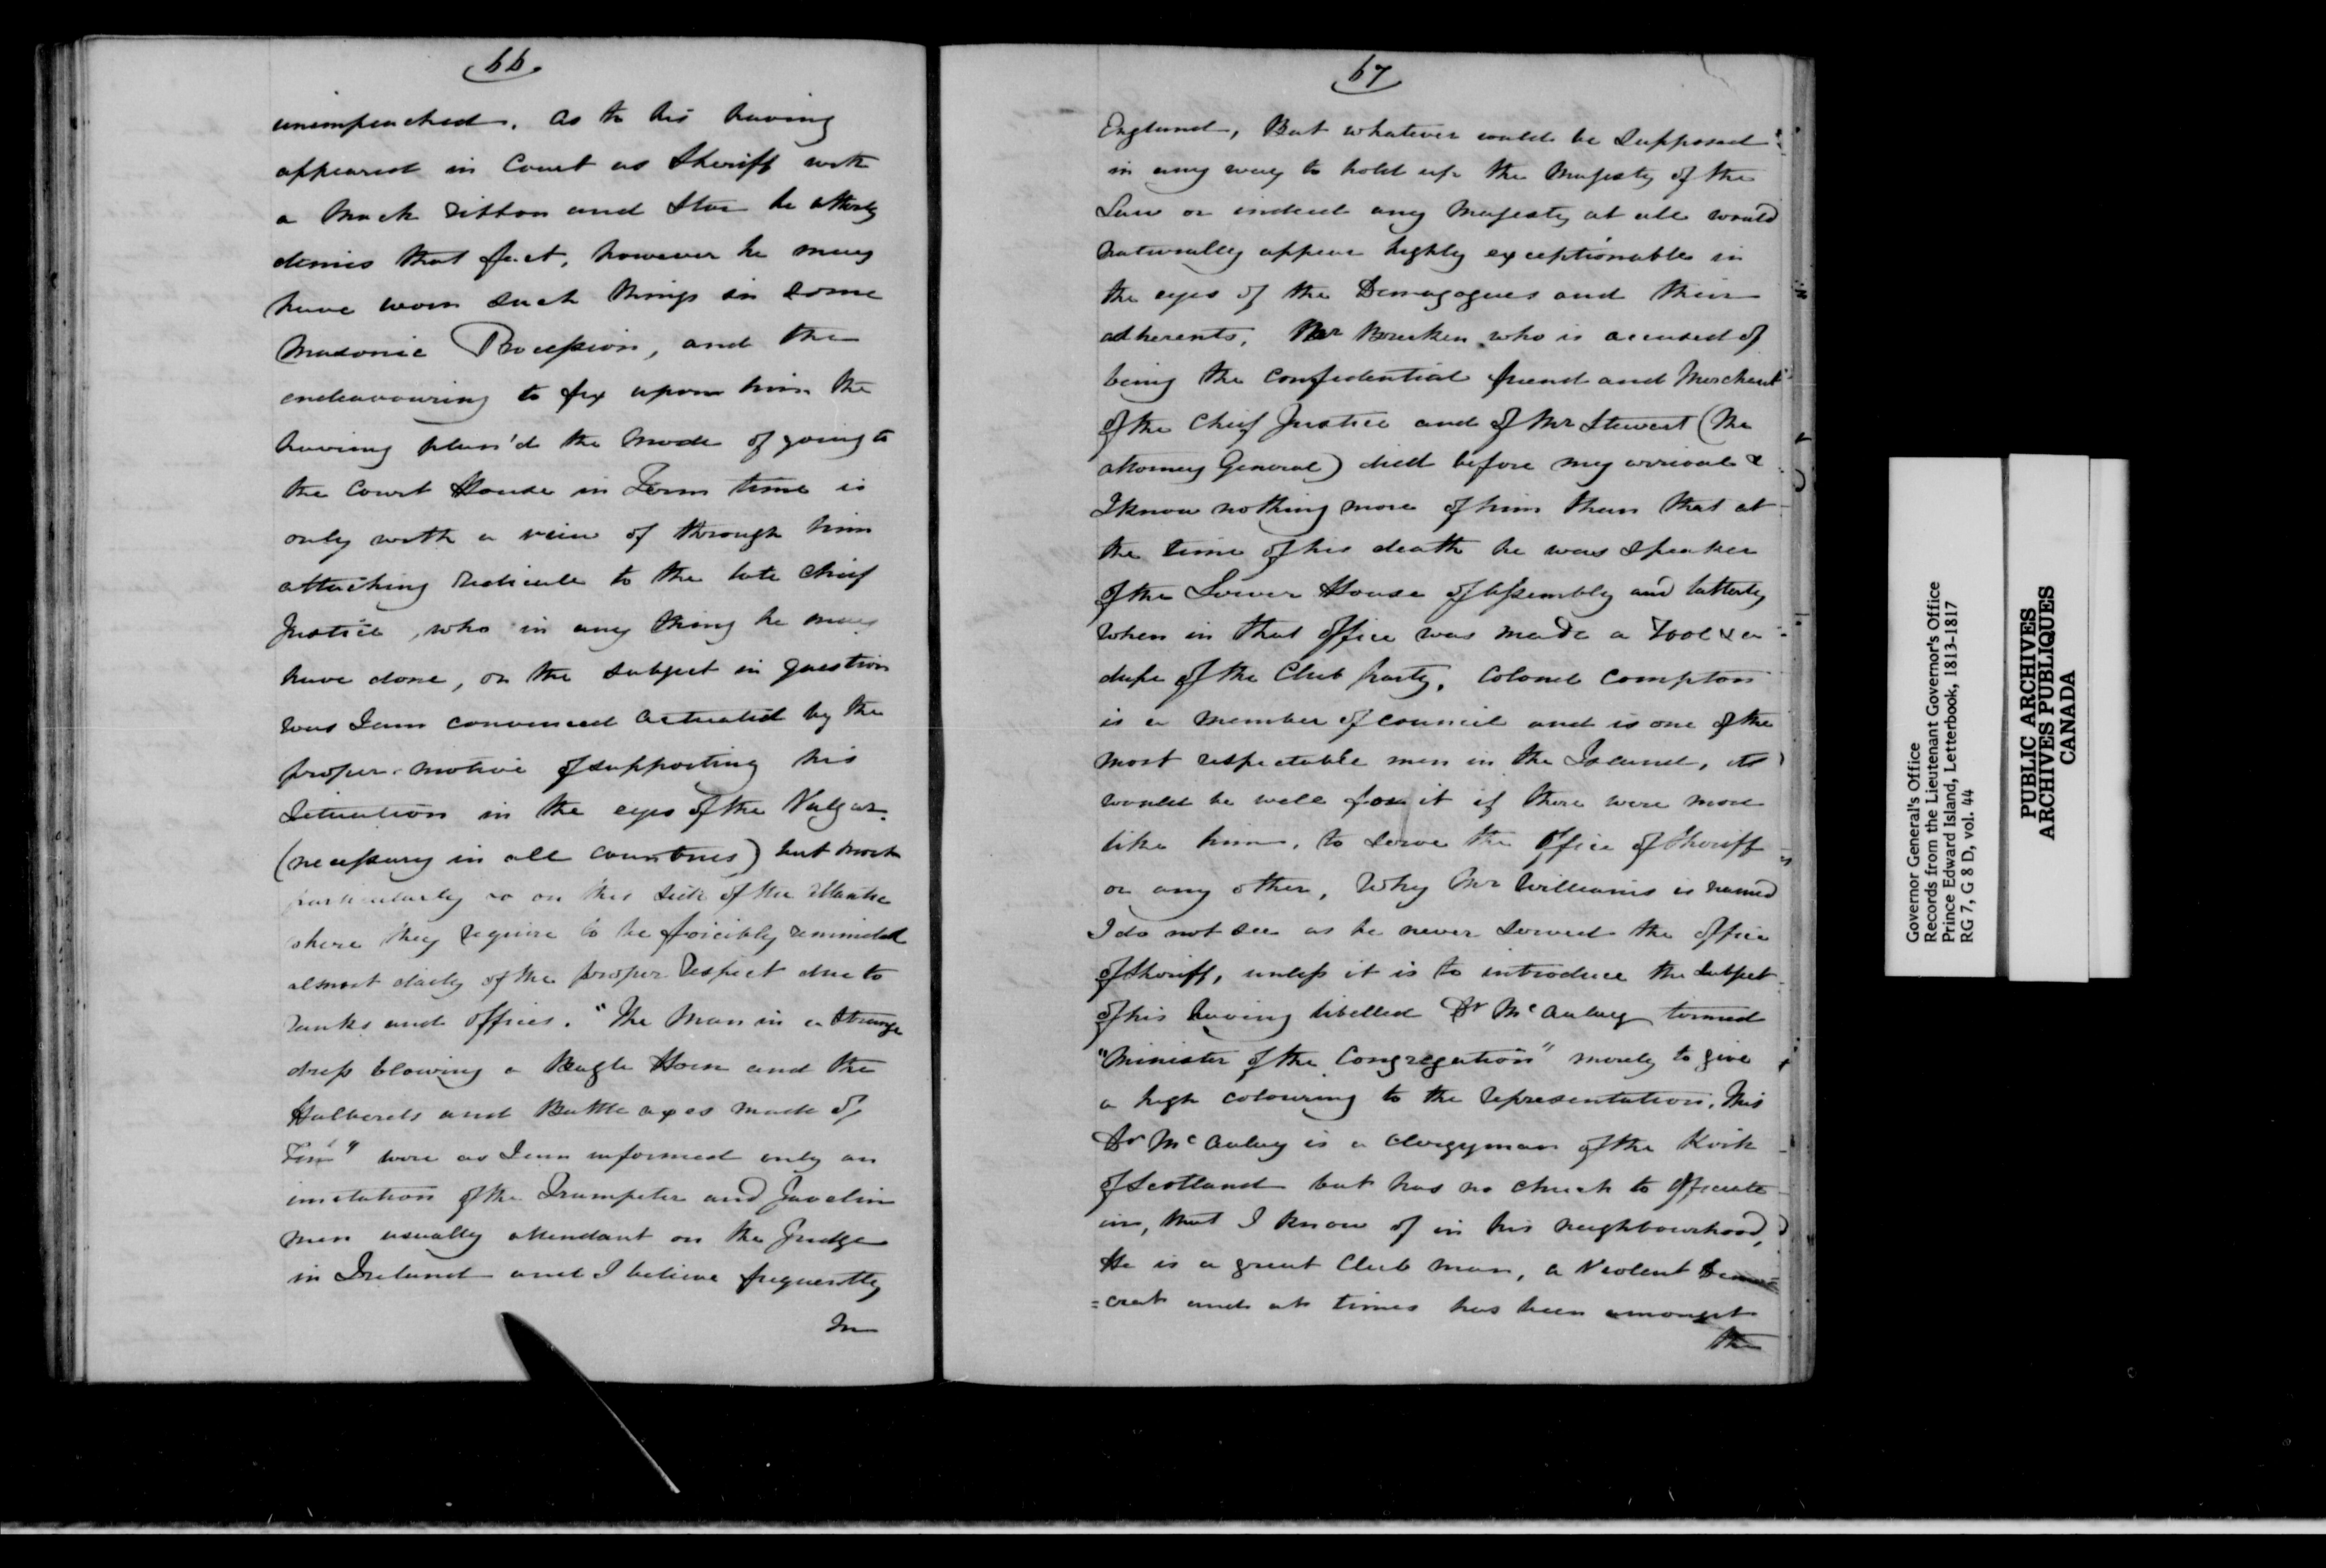 66
unimpeached. As to his having
appeared in Court as Sheriff with
a Mock Ribbon and Star he utterly
denies that fact, however he may
have worn such things in some
Masonic Procession, and the
endeavouring to fix upon him the
having plan'd the mode of going to
the Court House in Term time is
only with a view of through him
attaching Ridicule to the late Chief
Justice, who in any thing he may
have done, on the subject in question
was I am convinced actuated by the
proper motive of supporting his
Situation in the eyes of the Vulgar
(necessary in all countries) but most
particularly so on this side of the Atlantic
where they require to be forcibly reminded
almost daily of the proper Respect due to
Ranks and offices. "The Man in a Strange
dress blowing a Bugle Horn and the
Halberds and Battle axes made of
Tin" were as I am informed only an
imitation of the Trumpeter and Javelin
men usually attendant on the Judge
in Ireland and I believe frequently
In
67
England, But whatever could be supposed
in any way to hold up the Majesty of the
Law or indeed any Majesty at all would
naturally appear highly exceptionable in
the eyes of the Demagogues and their
adherents, Mr Brecken who is accused of
being the confidential friend and Merchant
of the Chief Justice and of Mr Stewart (the
attorney General) died before my arrival &
I know nothing more of him than that at
the time of his death he was Speaker
of the Lower House of Assembly and latterly
when in that office was made a Tool & a
dupe of the Club party, Colonel Compton
is a Member of Council and is one of the
most respectable men in the Island, it
would be well for it if there were more
like him, to serve the Office of Sheriff
or any other, Why Mr Williams is named
I do not see as he never served the office
of Sheriff, unless it is to introduce the subject
of his having libelled Dr McAulay termed
"Minister of the Congregation" merely to give
a high colouring to the representation. This
Dr McAulay is a Clergyman of the Kirk
of Scotland but has no church to officiate
in, that I know of in his neighbourhood,
He is a great Club man, a Violent Demo=
=crat and at times has been amongst
the
Governor General's Office
Records from the Lieutenant Governor's Office
Prince Edward Island, Letterbook, 1813-1817
RG 7, G 8 D, vol. 44
PUBLIC ARCHIVES
ARCHIVES PUBLIQUES
CANADA